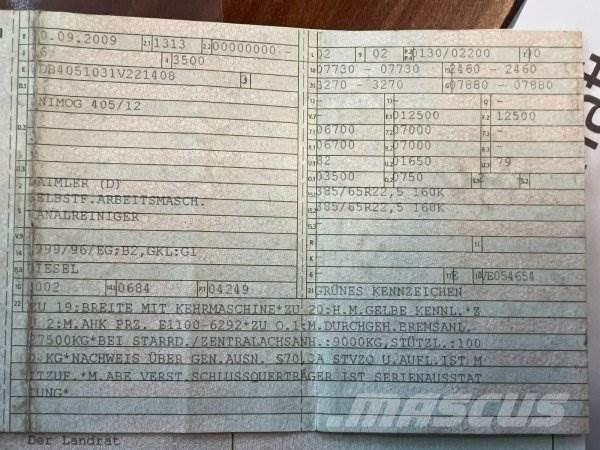 0.09.2009 2.1 1313 2.2 00000000 -
6 4 3500
DB4051031V221408 3
NIMOG 405/12
DAIMLER (D)
SELBSTF.ARBEITSMASCH.
KANALREINIGER
1999/96/EG;B2,GKL:G1
DIESEL
0002 14.1 0684 P.1 04249
L 02 9 02 0130/02200 T 90
18 07730 - 07730 19 2460 - 2460
20 3270 - 3270 G 07880 - 07880
12 - 13 - Q -
V.7 F.1 012500 F.2 12500
7.1 06700 7.2 07000 7.3 -
8.1 06700 8.2 07000 8.3 -
U.1 82 U.2 01650 U.3 79
O.1 03500 O.2 0750 S.1 - S.2
15.1 385/65R22,5 160K
15.2 385/65R22,5 160K
15.3
R 11
K -
6 - 17 E 16 VE054654
21 GRÜNES KENNZEICHEN
22 ZU 19:BREITE MIT KEHRMASCHINE*ZU 20:H.M.GELBE KENNL.*Z
U 2:M.AHK PRZ. E1100-6292*ZU O.1:M.DURCHGEH.BREMSANL.
27500KG*BEI STARRD./ZENTRALACHSANH.:9000KG,STÜTZL.:100
0 KG*NACHWEIS ÜBER GEN.AUSN. §70 DA STVZO U.AUFL.IST M
ITZUF.*M.ABE VERST.SCHLUSSQUERTRÄGER IST SERIENAUSSTAT
TUNG*
Der Landrat
mascus